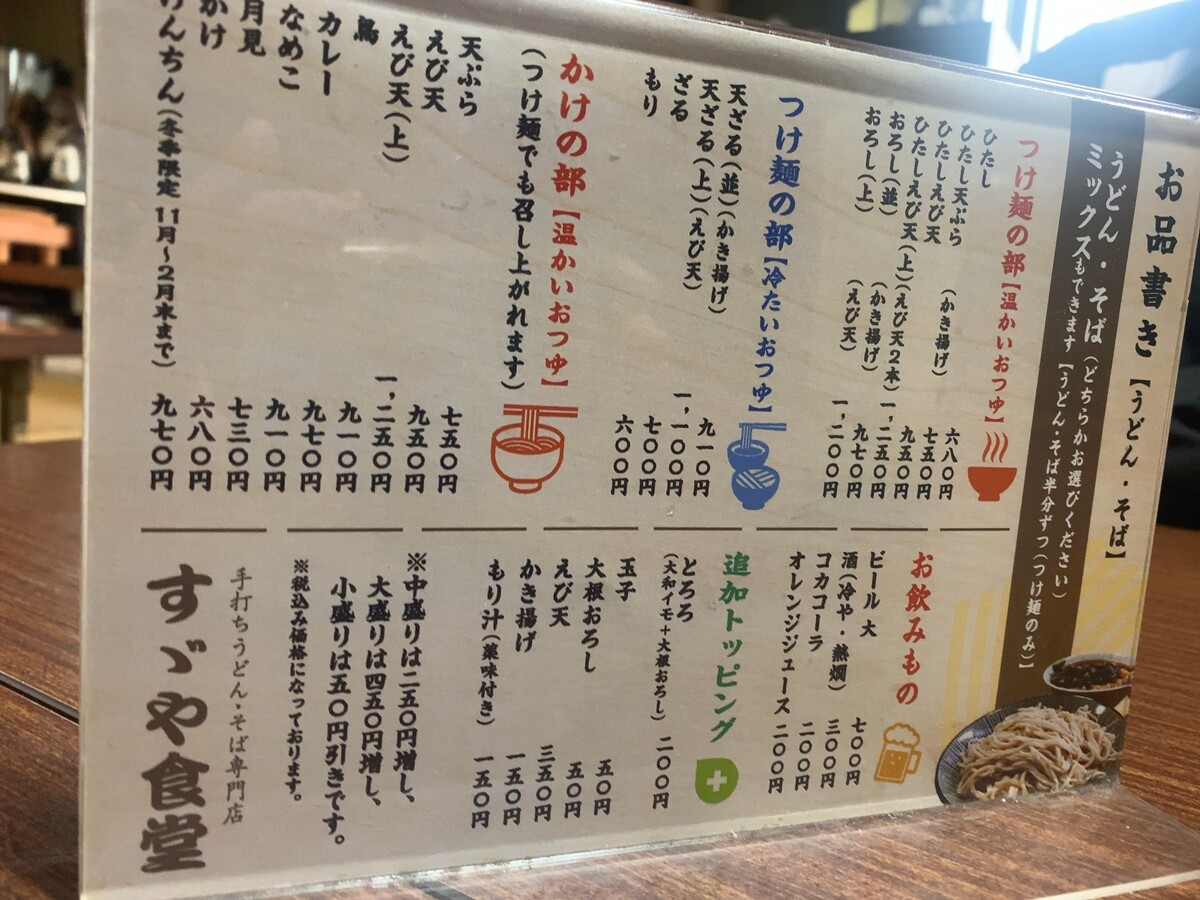 お品書き【うどん・そば】
うどん・そば(どちらかお選びください)
ミックスもできます【うどん・そば半分ずつ(つけ麺のみ)】
つけ麺の部【温かいおつゆ】
ひたし 六八〇円
ひたし天ぷら(かき揚げ) 七五〇円
ひたしえび天 九五〇円
ひたしえび天(上)(えび天2本) 一,二五〇円
おろし(並)(かき揚げ) 九七〇円
おろし(上)(えび天) 一,二〇〇円
つけ麺の部【冷たいおつゆ】
天ざる(並)(かき揚げ) 九一〇円
天ざる(上)(えび天) 一,一〇〇円
ざる 七〇〇円
もり 六〇〇円
かけの部【温かいおつゆ】
(つけ麺でも召し上がれます)
天ぷら 七五〇円
えび天 九五〇円
えび天(上) 一,二五〇円
鳥 九一〇円
カレー 九七〇円
なめこ 九一〇円
月見 七三〇円
かけ 六八〇円
けんちん(冬季限定 11月〜2月末まで) 九七〇円
お飲みもの
ビール 大 七〇〇円
酒(冷や・熱燗) 三〇〇円
コカコーラ 二〇〇円
オレンジジュース 二〇〇円
追加トッピング
とろろ
(大和イモ+大根おろし) 二〇〇円
玉子 五〇円
大根おろし 五〇円
えび天 三五〇円
かき揚げ 一五〇円
もり汁(薬味付き) 一五〇円
※中盛りは二五〇円増し、
大盛りは四五〇円増し、
小盛りは五〇円引きです。
※税込み価格になっております。
手打ちうどん・そば専門店
すゞや食堂